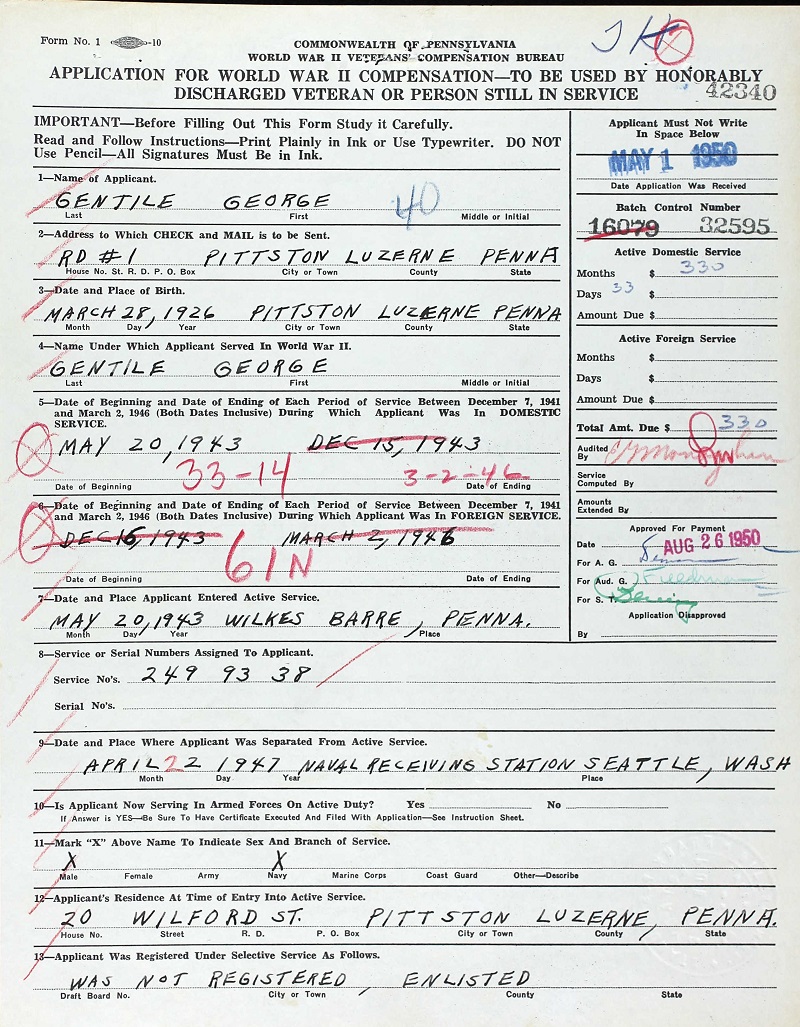 Form No. 1 -10
COMMONWEALTH OF PENNSYLVANIA
WORLD WAR II VETERANS' COMPENSATION BUREAU
APPLICATION FOR WORLD WAR II COMPENSATION—TO BE USED BY HONORABLY
DISCHARGED VETERAN OR PERSON STILL IN SERVICE
42340
IMPORTANT—Before Filling Out This Form Study it Carefully.
Read and Follow Instructions—Print Plainly in Ink or Use Typewriter. DO NOT
Use Pencil—All Signatures Must Be in Ink.
Applicant Must Not Write
In Space Below
MAY 1 1950
Date Application Was Received
Batch Control Number
16079 32595
Active Domestic Service
Months $ 330
Days 33 $
Amount Due $
Active Foreign Service
Months $
Days $
Amount Due $
Total Amt. Due $ 330
Audited
By
Service
Computed By
Amounts
Extended By
Approved For Payment
Date AUG 26 1950
For A. G.
For Aud. G. Friedman
For S. T.
Application Disapproved
By
1—Name of Applicant.
GENTILE GEORGE 40
Last First Middle or Initial
2—Address to Which CHECK and MAIL is to be Sent.
RD #1 PITTSTON LUZERNE PENNA
House No. St. R. D. P. O. Box City or Town County State
3—Date and Place of Birth.
MARCH 28, 1926 PITTSTON LUZERNE PENNA
Month Day, Year City or Town County State
4—Name Under Which Applicant Served In World War II.
GENTILE GEORGE
Last First Middle or Initial
5—Date of Beginning and Date of Ending of Each Period of Service Between December 7, 1941
and March 2, 1946 (Both Dates Inclusive) During Which Applicant Was In DOMESTIC
SERVICE.
MAY 20, 1943 DEC 15, 1943
33-14 3-2-46
Date of Beginning Date of Ending
6—Date of Beginning and Date of Ending of Each Period of Service Between December 7, 1941
and March 2, 1946 (Both Dates Inclusive) During Which Applicant Was In FOREIGN SERVICE.
DEC 16, 1943 MARCH 2, 1946
61N
Date of Beginning Date of Ending
7—Date and Place Applicant Entered Active Service.
MAY 20, 1943 WILKES BARRE, PENNA.
Month Day Year Place
8—Service or Serial Numbers Assigned To Applicant.
Service No's. 249 93 38
Serial No's.
9—Date and Place Where Applicant Was Separated From Active Service.
APRIL 22 1947 NAVAL RECEIVING STATION SEATTLE, WASH
Month Day Year Place
10—Is Applicant Now Serving In Armed Forces On Active Duty? Yes No
If Answer is YES—Be Sure To Have Certificate Executed And Filed With Application—See Instruction Sheet.
11—Mark "X" Above Name To Indicate Sex and Branch of Service.
X X
Male Female Army Navy Marine Corps Coast Guard Other—Describe
12—Applicant's Residence At Time of Entry Into Active Service.
20 WILFORD ST. PITTSTON LUZERNE, PENNA.
House No. Street R. D. P. O. Box City or Town County State
13—Applicant Was Registered Under Selective Service As Follows.
WAS NOT REGISTERED, ENLISTED
Draft Board No. City or Town County State